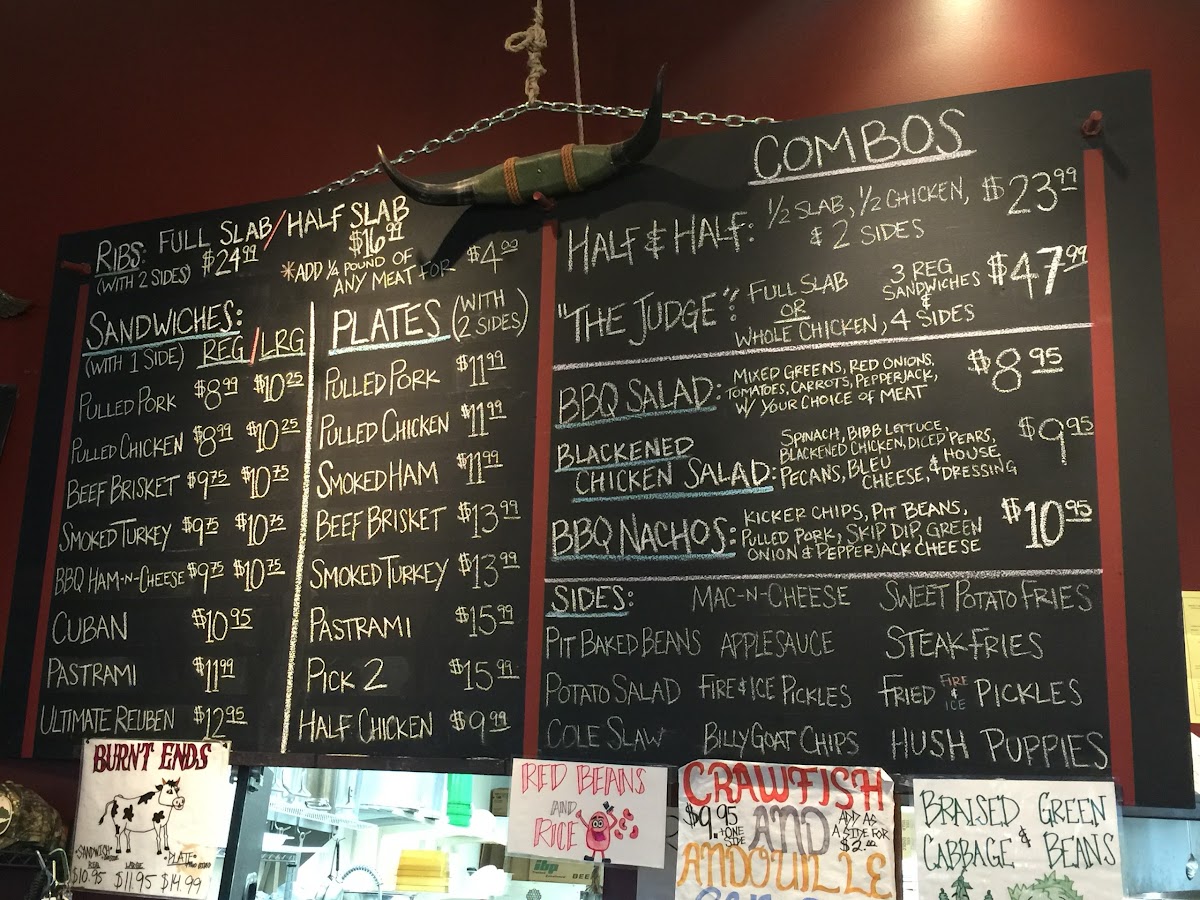 RIBS: FULL SLAB/HALF SLAB
(WITH 2 SIDES) $24.99 $16.99
*ADD 1/4 POUND OF ANY MEAT FOR $4.00
SANDWICHES:
(WITH 1 SIDE) REG/LRG
PULLED PORK $8.99 $10.25
PULLED CHICKEN $8.99 $10.25
BEEF BRISKET $9.75 $10.75
SMOKED TURKEY $9.75 $10.75
BBQ HAM-N-CHEESE $9.75 $10.75
CUBAN $10.95
PASTRAMI $11.99
ULTIMATE REUBEN $12.95
PLATES (WITH 2 SIDES)
PULLED PORK $11.99
PULLED CHICKEN $11.99
SMOKED HAM $11.99
BEEF BRISKET $13.99
SMOKED TURKEY $13.99
PASTRAMI $15.99
PICK 2 $15.99
HALF CHICKEN $9.99
COMBOS
HALF & HALF: 1/2 SLAB, 1/2 CHICKEN, & 2 SIDES $23.99
"THE JUDGE": FULL SLAB OR WHOLE CHICKEN, 3 REG SANDWICHES & 4 SIDES $47.99
BBQ SALAD: MIXED GREENS, RED ONIONS, $8.95
TOMATOES, CARROTS, PEPPERJACK,
W/ YOUR CHOICE OF MEAT
BLACKENED CHICKEN SALAD: SPINACH, BIBB LETTUCE, $9.95
BLACKENED CHICKEN, DICED PEARS,
PECANS, BLEU CHEESE, & HOUSE DRESSING
BBQ NACHOS: KICKER CHIPS, PIT BEANS, $10.95
PULLED PORK, SKIP DIP, GREEN
ONION & PEPPERJACK CHEESE
SIDES: MAC-N-CHEESE SWEET POTATO FRIES
PIT BAKED BEANS APPLESAUCE STEAK FRIES
POTATO SALAD FIRE & ICE PICKLES FRIED FIRE & ICE PICKLES
COLE SLAW BILLY GOAT CHIPS HUSH PUPPIES
BURNT ENDS
SANDWICH LARGE PLATE
$10.95 $11.95 $14.99
RED BEANS
AND
RICE
CRAWFISH
$9.95 +ONE SIDE AND ADD AS A SIDE FOR $2.00
ANDOUILLE
BRAISED GREEN
CABBAGE & BEANS
ibp BEEF